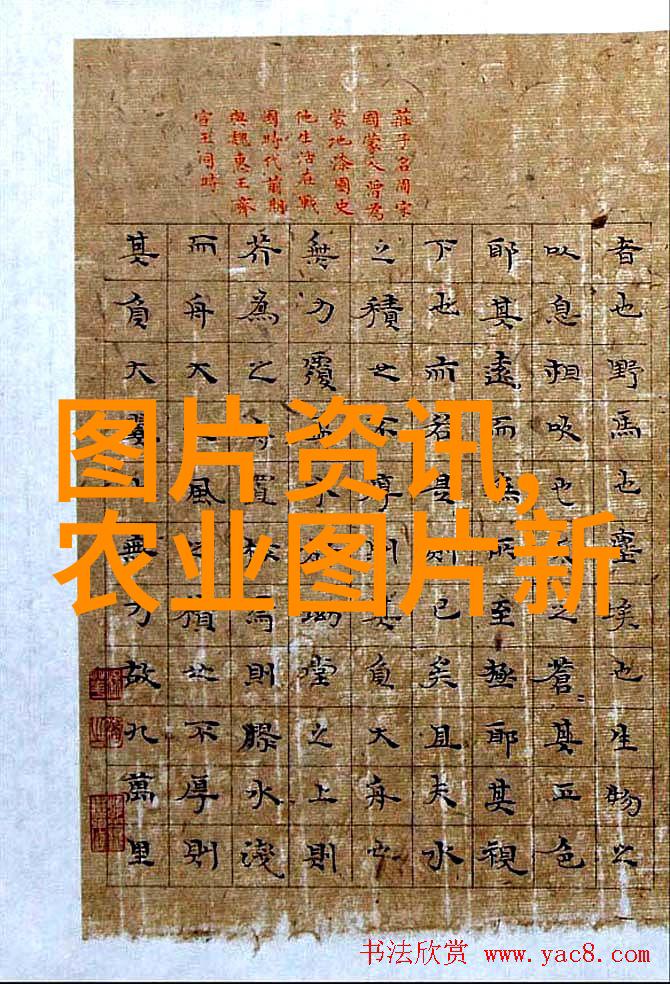 莊子名周宋
國蒙人曾為
蒙地漆園史
他生活在戰
國時代前期
與魏惠王齊
宣王同時
者也野馬也塵埃也生物之
以息相吹也天之蒼=其正色
耶其遠而無所至極耶其視
下也而若是則已矣且夫水
之積也不厚則其負大舟也
無力覆盃水於坳堂之上則
芥為之舟置杯焉則膠水淺
而舟大也風之積也不厚則
其負大翼也無力故九萬里
图片资讯,
农业图片新
书法欣赏 www.yac8.com